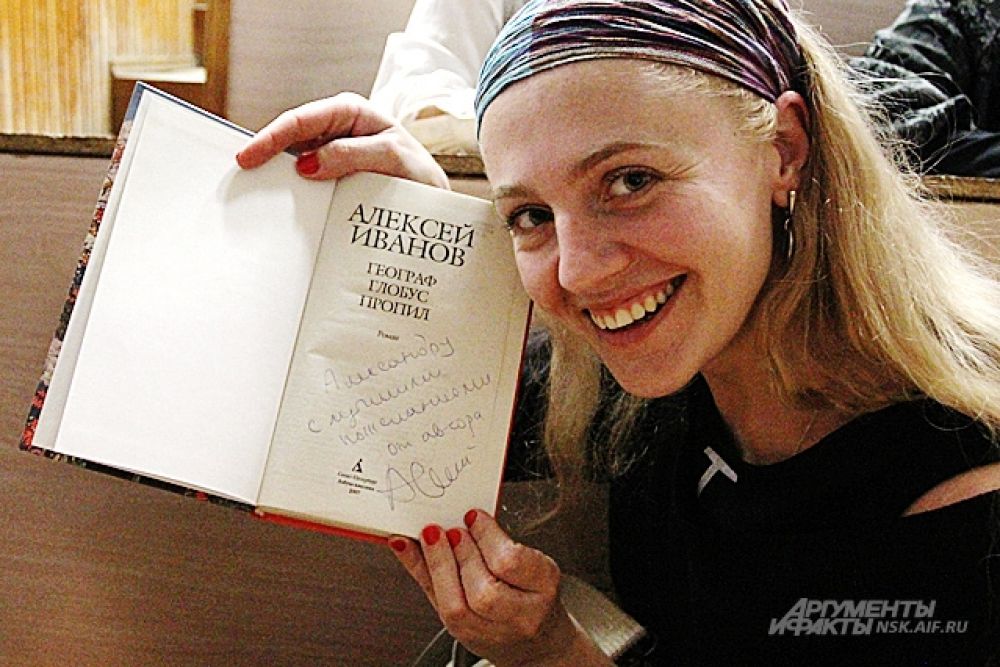 АЛЕКСЕЙ
ИВАНОВ
ГЕОГРАФ
ГЛОБУС
ПРОПИЛ
Роман
Александру
с лучшими
пожеланиями
от автора
Санкт-Петербург
Азбука-классика
2007
АРГУМЕНТЫ
И ФАКТЫ NSK.AIF.RU